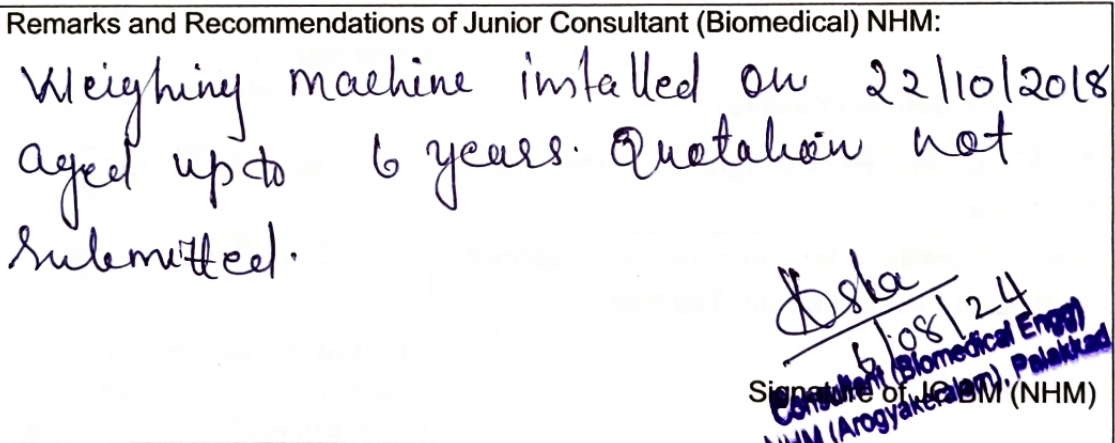 Remarks and Recommendations of Junior Consultant (Biomedical) NHM:
Weighing machine installed on 22/10/2018
aged upto 6 years. Quotation not
submitted.
6/08/24
Consultant (Biomedical Engg)
Signature of JCBM (NHM)
NHM (Arogyakeralam), Palakkad